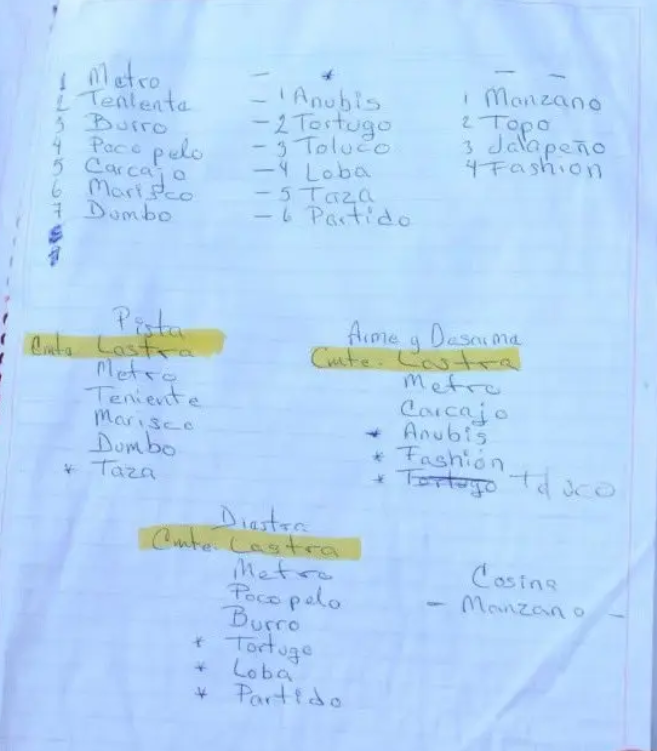 1 Metro
2 Teniente
3 Burro
4 Poco pelo
5 Carcajo
6 Marisco
7 Dumbo
8
9
— *
— 1 Anubis
— 2 Tortugo
— 3 Toluco
— 4 Loba
— 5 Taza
— 6 Partido
— —
1 Manzano
2 Topo
3 Jalapeño
4 Fashion
Pista
Cmte. Lastra
Metro
Teniente
Marisco
Dumbo
* Taza
Arme y Desarme
Cmte. Lastra
Metro
Carcajo
* Anubis
* Fashion
* Tortugo Toluco
Diestra
Cmte. Lastra
Metro
Poco pelo
Burro
* Tortugo
* Loba
* Partido
Cosina
— Manzano —